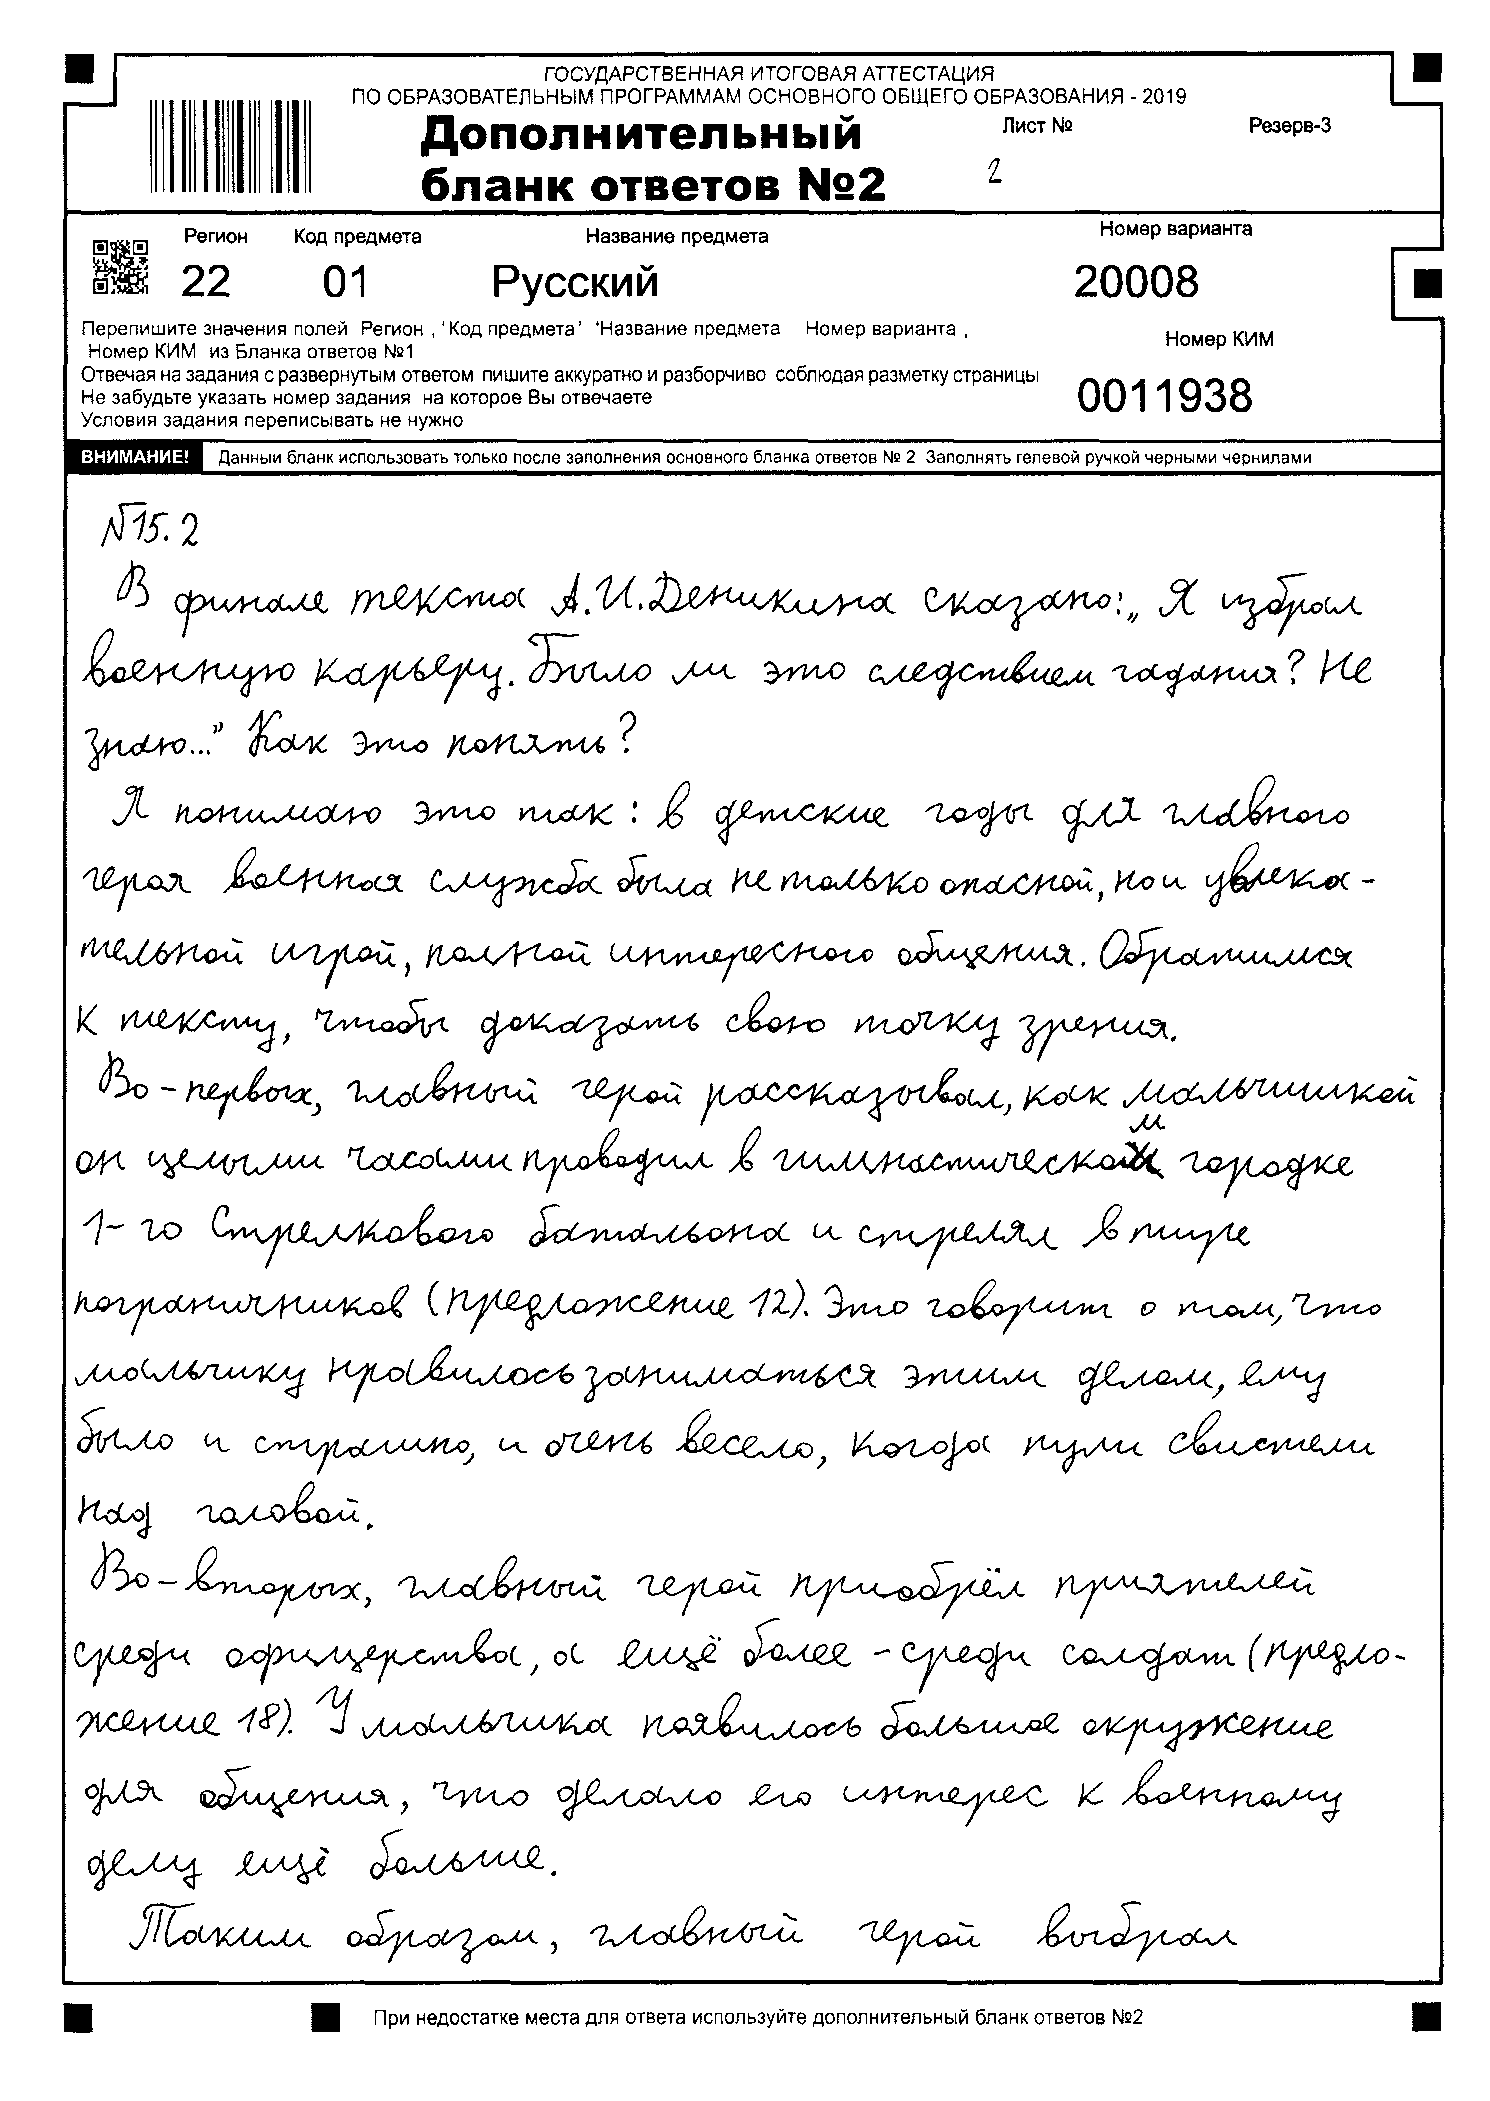 ГОСУДАРСТВЕННАЯ ИТОГОВАЯ АТТЕСТАЦИЯ
ПО ОБРАЗОВАТЕЛЬНЫМ ПРОГРАММАМ ОСНОВНОГО ОБЩЕГО ОБРАЗОВАНИЯ - 2019
Дополнительный
бланк ответов №2
Лист №
2
Резерв-3
Регион
Код предмета
Название предмета
Номер варианта
22
01
Русский
20008
Перепишите значения полей Регион , 'Код предмета' 'Название предмета Номер варианта ,
Номер КИМ из Бланка ответов №1
Номер КИМ
Отвечая на задания с развернутым ответом пишите аккуратно и разборчиво соблюдая разметку страницы
Не забудьте указать номер задания на которое Вы отвечаете
Условия задания переписывать не нужно
0011938
ВНИМАНИЕ!
Данный бланк использовать только после заполнения основного бланка ответов № 2 Заполнять гелевой ручкой черными чернилами
№15.2
В финале текста А.И.Деникина сказано:„ Я избрал
военную карьеру. Было ли это следствием гадания? Не
знаю..." Как это понять?
Я понимаю это так: в детские годы для главного
героя военная служба была не только опасной, но и увлека-
тельной игрой, полной интересного общения. Обратимся
к тексту, чтобы доказать свою точку зрения.
Во-первых, главный герой рассказывал, как мальчишкой
он целыми часами проводил в гимнастическом городке
1-го Стрелкового батальона и стрелял в тире
пограничников (предложение 12). Это говорит о том, что
мальчику нравилось заниматься этим делом, ему
было и страшно, и очень весело, когда пули свистели
над головой.
Во-вторых, главный герой приобрёл приятелей
среди офицерства, а ещё более - среди солдат (предло-
жение 18). У мальчика появилось большое окружение
для общения, что делало его интерес к военному
делу ещё больше.
Таким образом, главный герой выбрал
При недостатке места для ответа используйте дополнительный бланк ответов №2